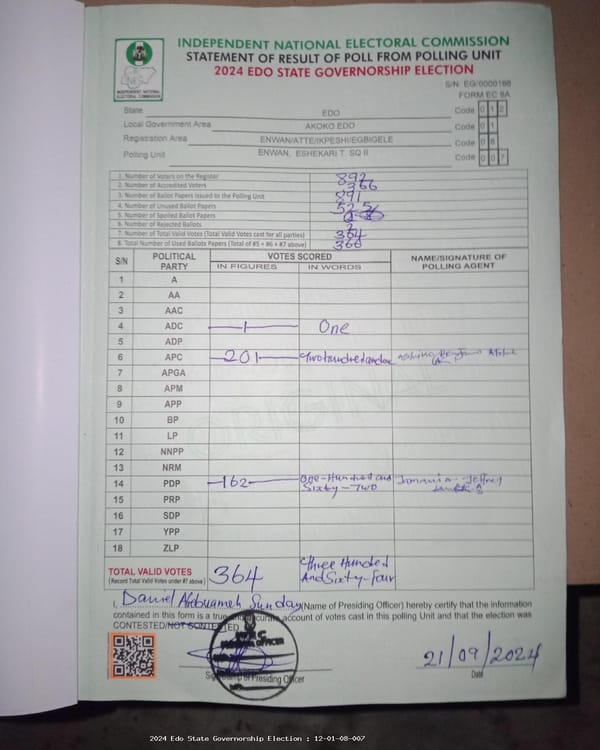 INDEPENDENT NATIONAL ELECTORAL COMMISSION
STATEMENT OF RESULT OF POLL FROM POLLING UNIT
2024 EDO STATE GOVERNORSHIP ELECTION
INDEPENDENT NATIONAL ELECTORAL COMMISSION
S/N: EG/0000168
FORM EC 8A
State EDO Code 0 1 2
Local Government Area AKOKO EDO Code 0 1
Registration Area ENWAN/ATTE/IKPESHI/EGBIGELE Code 0 8
Polling Unit ENWAN, ESHEKARI T. SQ II Code 0 0 7
1. Number of Voters on the Register 892
2. Number of Accredited Voters 366
3. Number of Ballot Papers Issued to the Polling Unit 891
4. Number of Unused Ballot Papers 525
5. Number of Spoiled Ballot Papers
6. Number of Rejected Ballots 2
7. Number of Total Valid Votes (Total Valid Votes cast for all parties) 364
8. Total Number of Used Ballots Papers (Total of #5 + #6 + #7 above) 366
S/N POLITICAL PARTY VOTES SCORED NAME/SIGNATURE OF POLLING AGENT
IN FIGURES IN WORDS
1 A
2 AA
3 AAC
4 ADC 1 One
5 ADP
6 APC 201 Two hundred and one
7 APGA
8 APM
9 APP
10 BP
11 LP
12 NNPP
13 NRM
14 PDP 162 One-Hundred and Sixty-Two Jeffrey
15 PRP
16 SDP
17 YPP
18 ZLP
ORIGINAL
TOTAL VALID VOTES 364 Three Hunded And Sixty-Four
(Record Total Valid Votes under #7 above)
I, Daniel Sunday (Name of Presiding Officer) hereby certify that the information
contained in this form is a true and accurate account of votes cast in this polling Unit and that the election was
CONTESTED/NOT CONTESTED
Signature/Stamp of Presiding Officer
21/09/2024
Date
2024 Edo State Governorship Election : 12-01-08-007